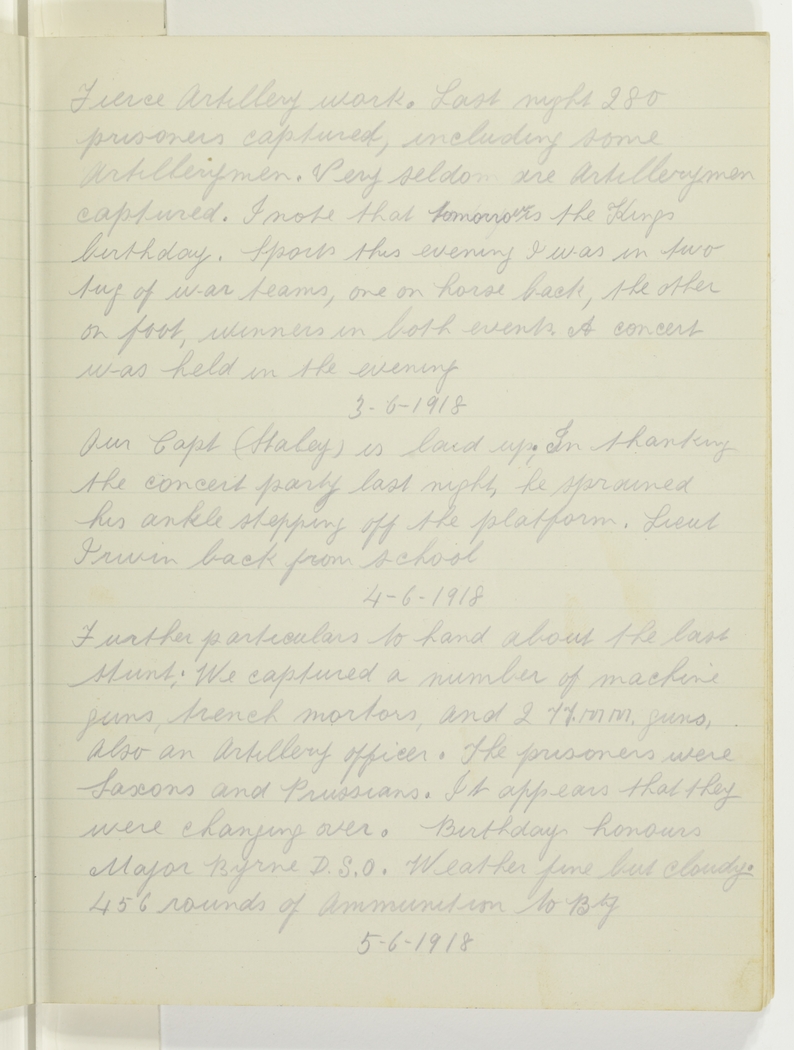 Fierce Artillery work. Last night 280
prisoners captured, including some
Artillerymen. Very seldom are Artillerymen
captured. I note that tomorrow is the Kings
birthday. Sports this evening I was in two
tug of war teams, one on horse back, the other
on foot, winners in both events A concert
was held in the evening
3-6-1918
Our Capt (Staley) is laid up. In thanking
the concert party last night, he sprained
his ankle stepping off the platform. Lieut
Irwin back from school
4-6-1918
Further particulars to hand about the last
stunt; We captured a number of machine
guns, trench mortors, and 2 77.m.m. guns,
Also an Artillery officer. The prisoners were
Saxons and Prussians. It appears that they
were changing over. Birthday honours
Major Byrne D.S.O. Weather fine but cloudy.
456 rounds of Ammunition to Bty
5-6-1918